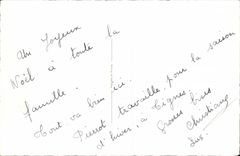 Un Joyeux
Noël à toute la
famille.
Tout va bien ici.
Pierrot travaille pour la saison
d'hiver à Tignes
Grosses bises
Christiane